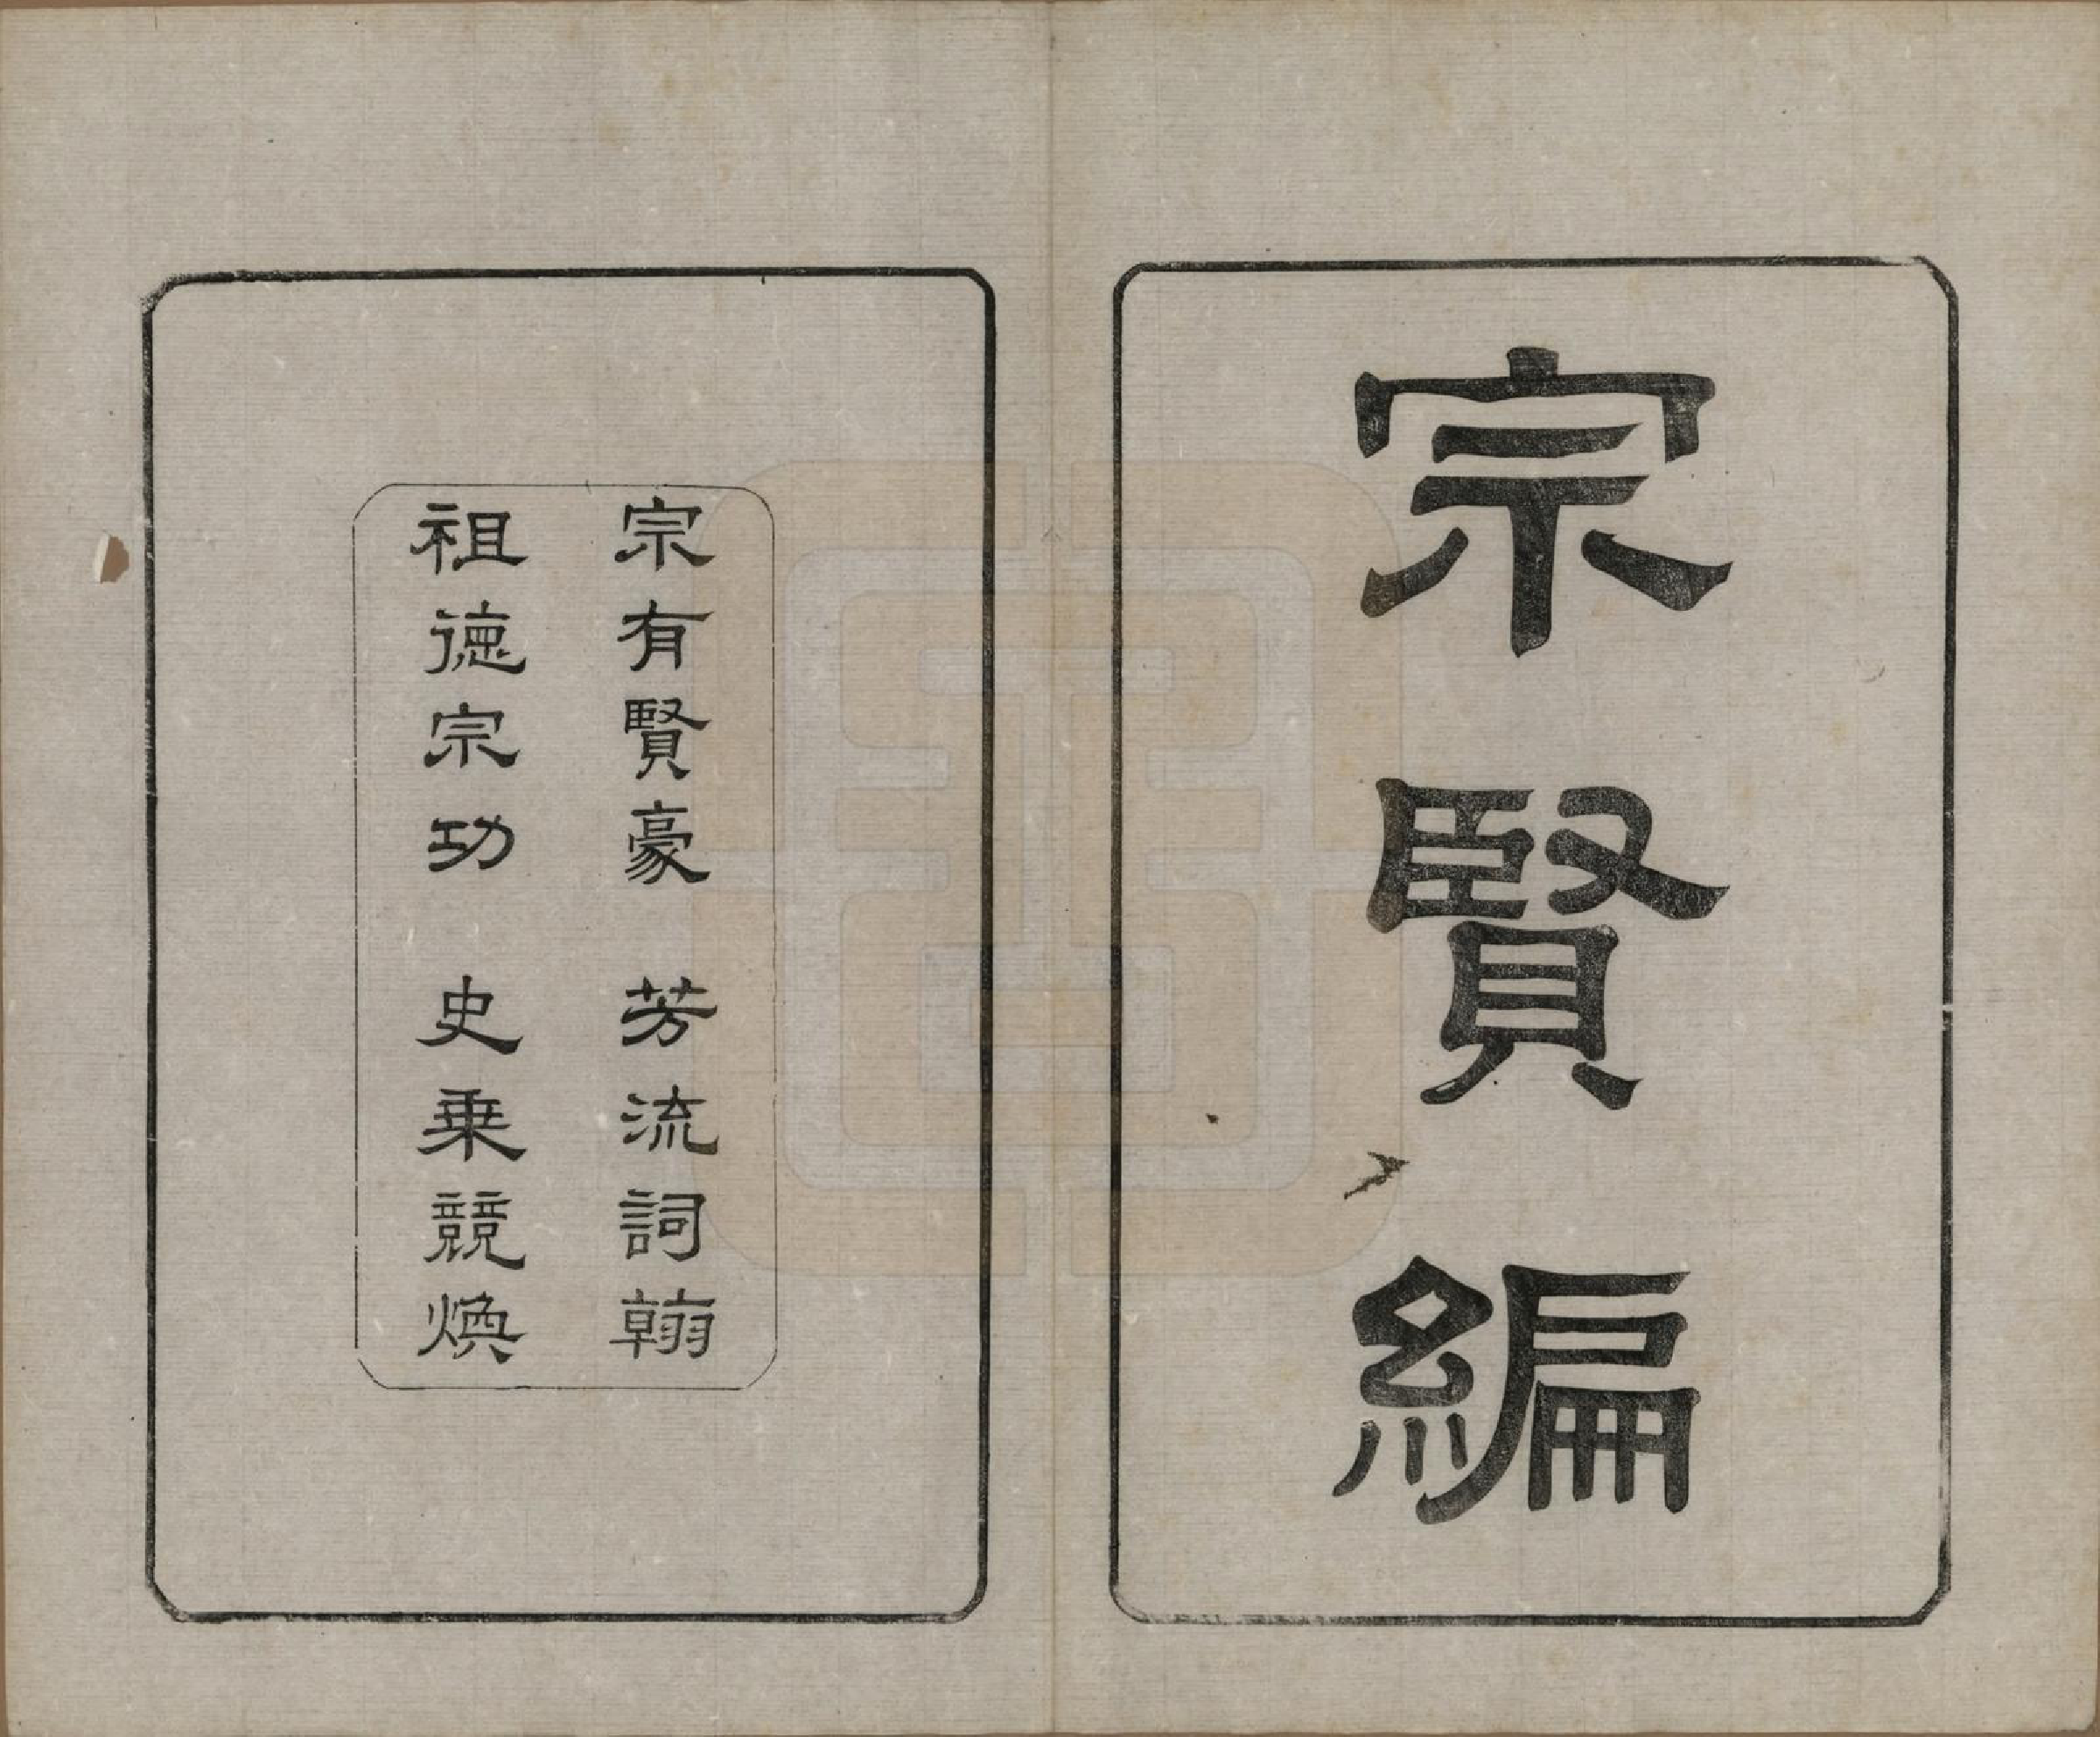 宗賢編
宗有賢豪 芳流詞翰
祖德宗功 史乘競煥